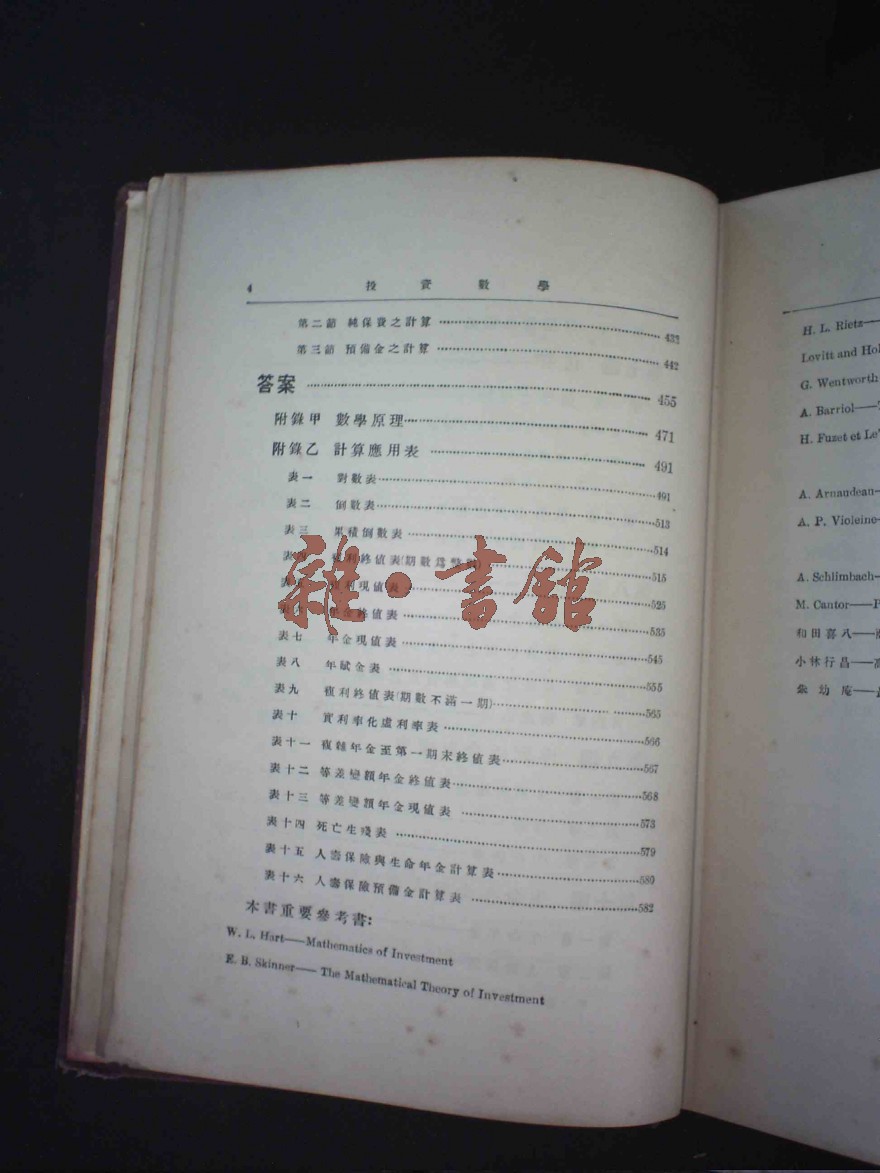 4 投資數學
第二節 純保費之計算 433
第三節 預備金之計算 442
答案 455
附錄甲 數學原理 471
附錄乙 計算應用表 491
表一 對數表 491
表二 倒數表 513
表三 累積倒數表 514
表四 複利終值表(期數爲整期) 515
表五 複利現值表 525
表六 年金終值表 535
表七 年金現值表 545
表八 年賦金表 555
表九 複利終值表(期數不滿一期) 565
表十 實利率化虛利率表 566
表十一 複雜年金至第一期末終值表 567
表十二 等差變額年金終值表 568
表十三 等差變額年金現值表 573
表十四 死亡生殘表 579
表十五 人壽保險與生命年金計算表 580
表十六 人壽保險預備金計算表 582
本書重要參考書:
W. L. Hart—Mathematics of Investment
E. B. Skinner—The Mathematical Theory of Investment
雜·書館
H. L. Rietz—
Lovitt and Hol
G. Wentworth
A. Barriol—
H. Fuzet et Le
A. Arnaudeau—
A. P. Violeine—
A. Schlimbach—
M. Cantor—P
和田喜八—
小林行昌—
朱幼庵—